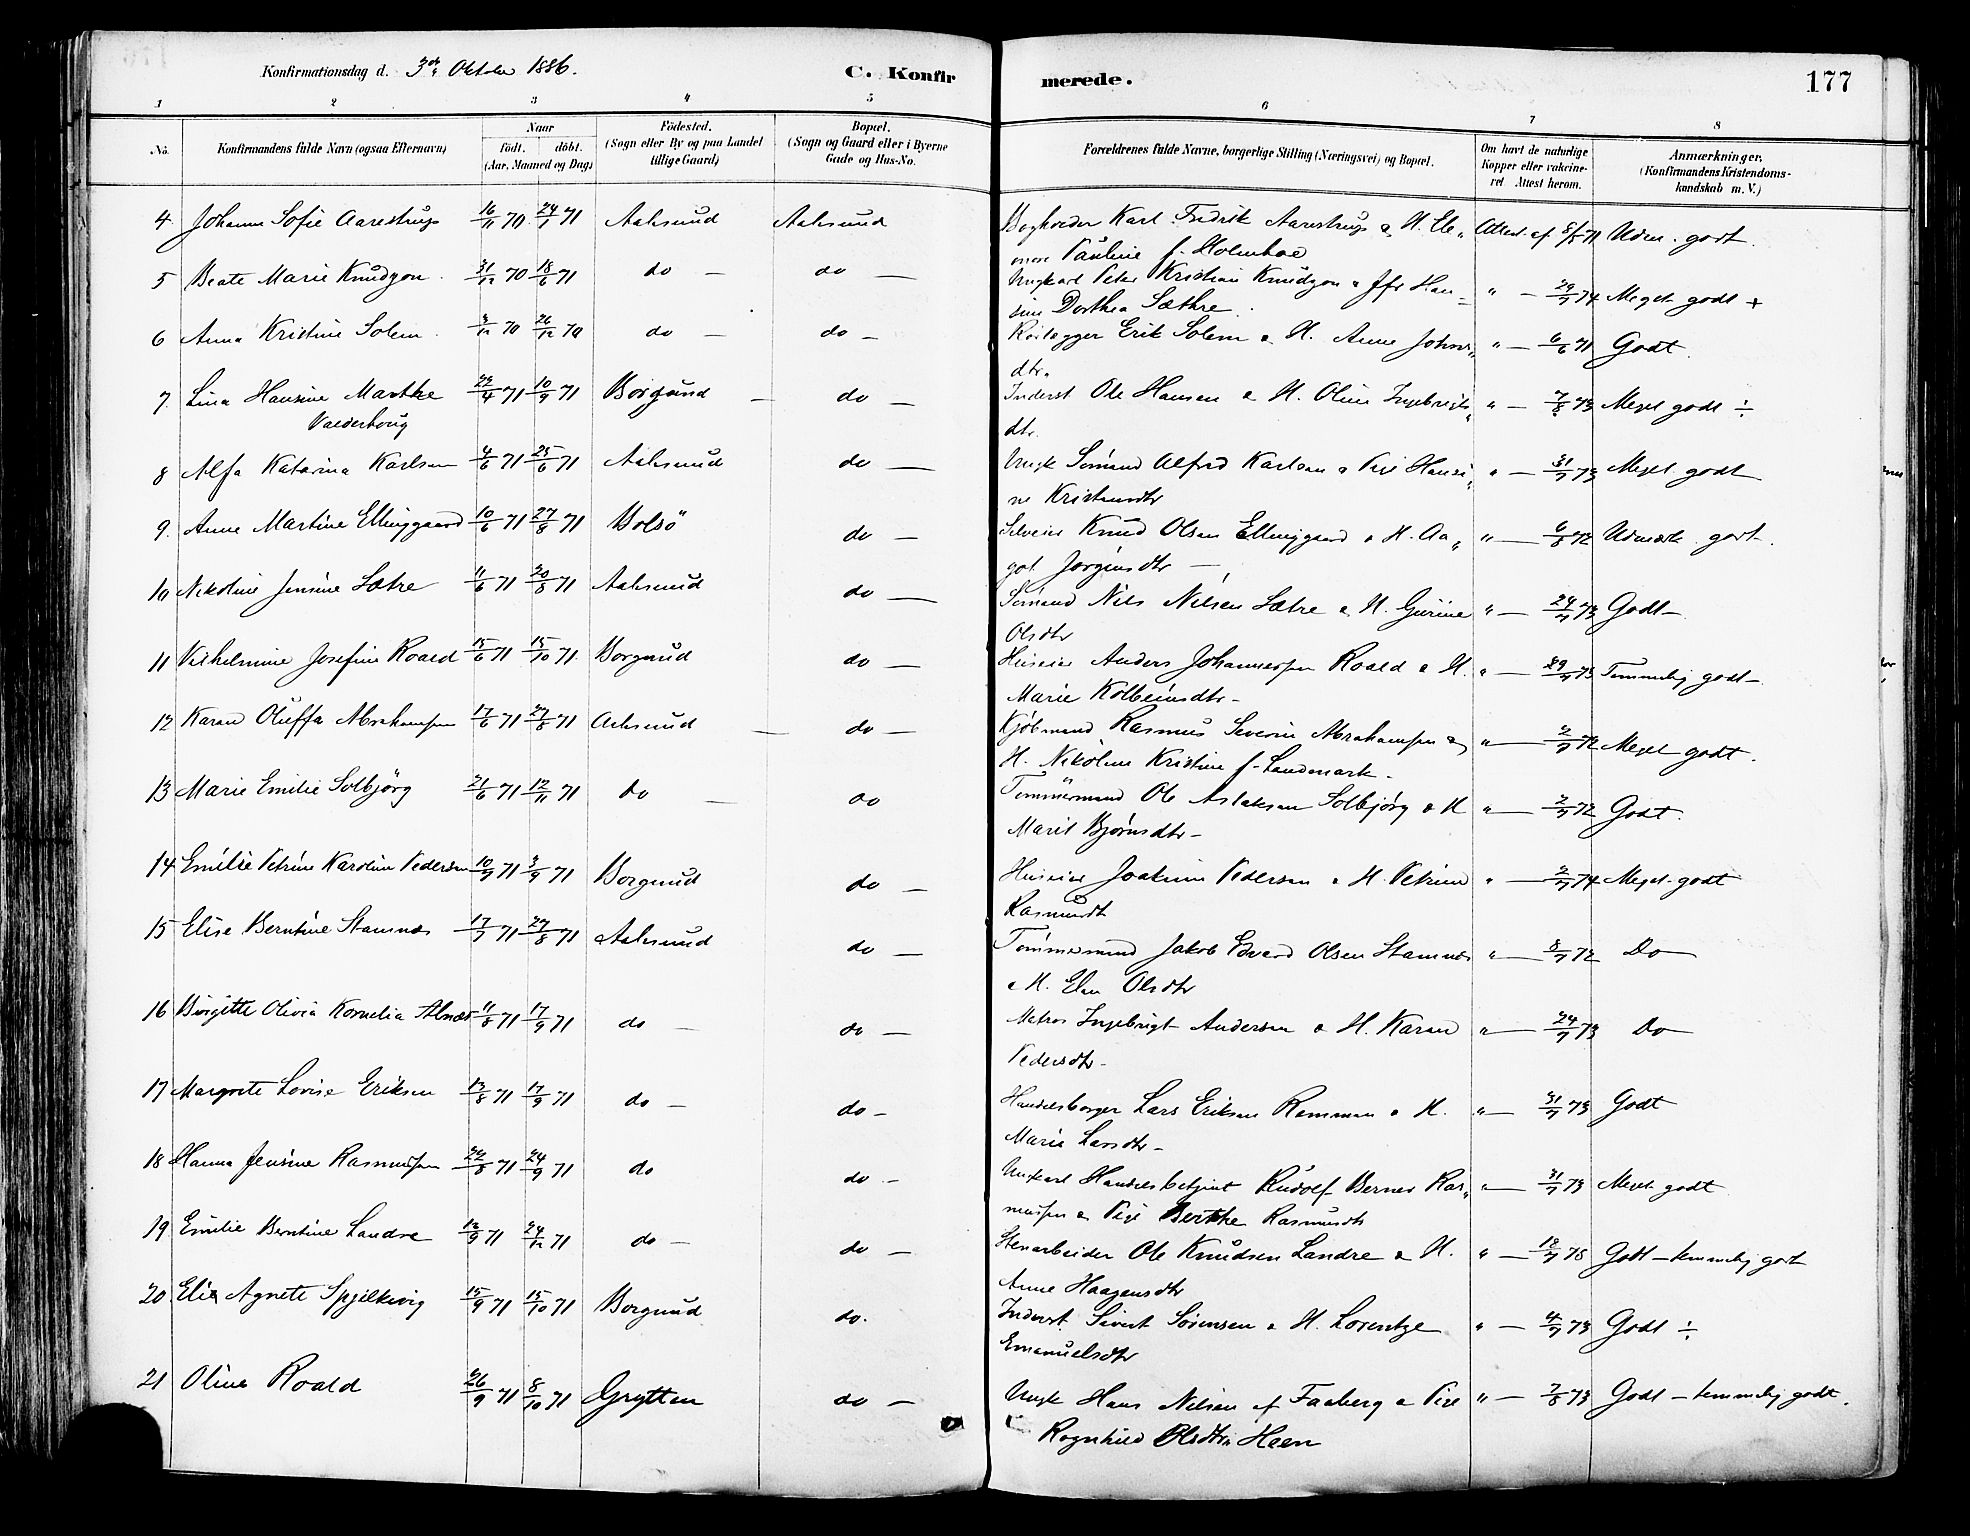 Konfirmationsdag d. 3die Oktober 1886.
C. Konfirmerede.
177
1 2 3 4 5 6 7 8
No. Konfirmandens fulde Navn (ogsaa Efternavn) Naar födt. döbt. (Aar, Maaned og Dag) Födested. (Sogn eller By og paa Landet tillige Gaard) Bopæl. (Sogn og Gaard eller i Byerne Gade og Hus-No. Forældrenes fulde Navne, borgerlige Stilling (Næringsvei) og Bopæl. Om havt de naturlige Kopper eller vaccineret. Attest herom. Anmærkninger. (Konfirmandens Kristendomskundskab m. V.)
4. Johanna Sofie Aarestrup 16/11 70 24/1 71 Aalesund Aalesund Bogholder Karl Fredrik Aarestrup & H. Ele„
nore Pauline f. Holmboe Attest af 8/8 71 Udm. godt.
5 Beate Marie Knudzon. 31/12 70 18/6 71 do — do — Ungkarl Peter Kristian Knudzon & Jfr Han„
sine Dorthea Sæthre. „ — 29/7 74 Meget godt +
6 Anna Kristine Solem. 3/12 70 26/12 70 do — do — Erik Solem & H. Anne Johns„
dtr. „ — 6/6 71 Godt.
7. Lina Hansine Marthe
Valderhoug 22/4 71 10/9 71 Borgund — do — Inderst Ole Hansen & H. Oline Ingebrigts„
dtr. „ — 7/8 73 Meget godt ÷
8 Alfa Katarina Karlsen 4/6 71 25/6 71 Aalesund do — Ungk Sømand Alfred Karlsen & Pige Hansi„
ne Kristensdtr „ — 31/7 73 Meget godt
9. Anne Martine Ellinggaard 10/6 71 27/8 71 Bolsö do — Selveier Knud Olsen Ellinggaard & H. Aa„
got Jørgensdtr — „ — 6/8 72 Udmærk. godt.
10 Nikoline Jensine Sætre 11/6 71 20/8 71 Aalesund do — Sømand Nils Nilsen Sætre & H. Gurine
Olsdtr „ — 24/7 73 Godt —
11 Vilhelmine Josefine Roald 15/6 71 15/10 71. Borgund do — Huseier Anders Johannessen Roald & H.
Marie Kolbeinsdtr — „ — 29/7 73 Temmelig godt —
12 Karen Oluffa Abrahamsen 17/6 71 27/8 71 Aalesund — do — Kjøbmand Rasmus Severin Abrahamsen &
H. Nikoline Kristine f. Landmark — „ — 2/7 72 Meget godt.
13 Marie Emilie Solbjörg 21/6 71 12/11 71 do — do Tømmermand Ole Aslaksen Solbjörg & H
Marit Bjørnsdtr — „ — 2/7 72 Godt.
14 Emilie Petrine Karoline Pedersen 10/7 71 3/9 71 Borgund do — Huseier Joakim Pedersen & H. Petrine
Rasmusdt „ — 2/7 74 Meget godt
15 Elise Berntine Stamnæs 17/7 71 27/8 71 Aalesund do — Tømmermand Jakob Edvard Olsen Stamnæs
& H. Elen Olsdtr „ — 8/7 72 Do —
16 Birgitte Olivia Kornelia Alnæs 11/8 71 17/9 71 do — do — Matros Ingebrigt Andersen & H. Karen
Pedersdtr — „ — 24/7 73 Do —
17 Margrete Lovise Eriksen 13/8 71 17/9 71 do — do — Handelsborger Lars Eriksen Remmen & H.
Marie Larsdtr — „ — 31/7 73 Godt
18 Hanna Jensine Rasmussen 22/8 71 24/9 71 do do — Ungkarl Handelsbetjent Rudolf Berner Ras„
mussen & Pige Berthe Rasmusdtr „ — 31/7 73 Meget godt
19 Emilie Berntine Landre 13/9 71 24/12 71 do — do — Stenarbeider Ole Knudsen Landre & H.
Anne Haagensdtr „ — 18/7 75 Godt — temmelig godt
20 Elise Agnete Spjelkevig 15/9 71 15/10 71 Borgund do. Inderst. Sivert Sørensen & H. Lorentze
Emanuelsdtr „ — 4/7 73 Godt ÷
21 Oline Roald 26/9 71 8/10 71 Grytten do — Ungk Hans Nilsen af Faaberg & Pige
Ragnhild Olsdtr Heen „ — 7/8 73 Godt — temmelig godt.